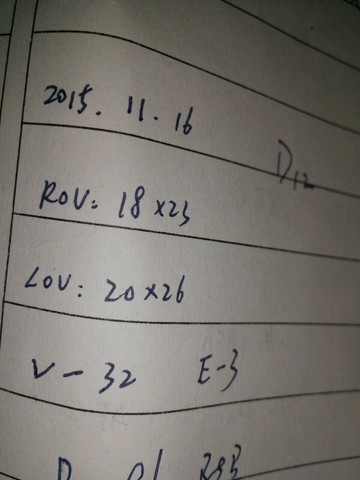 2015. 11. 16
D12
ROV: 18 x 23
LOV: 20 x 26
V - 32 E-3